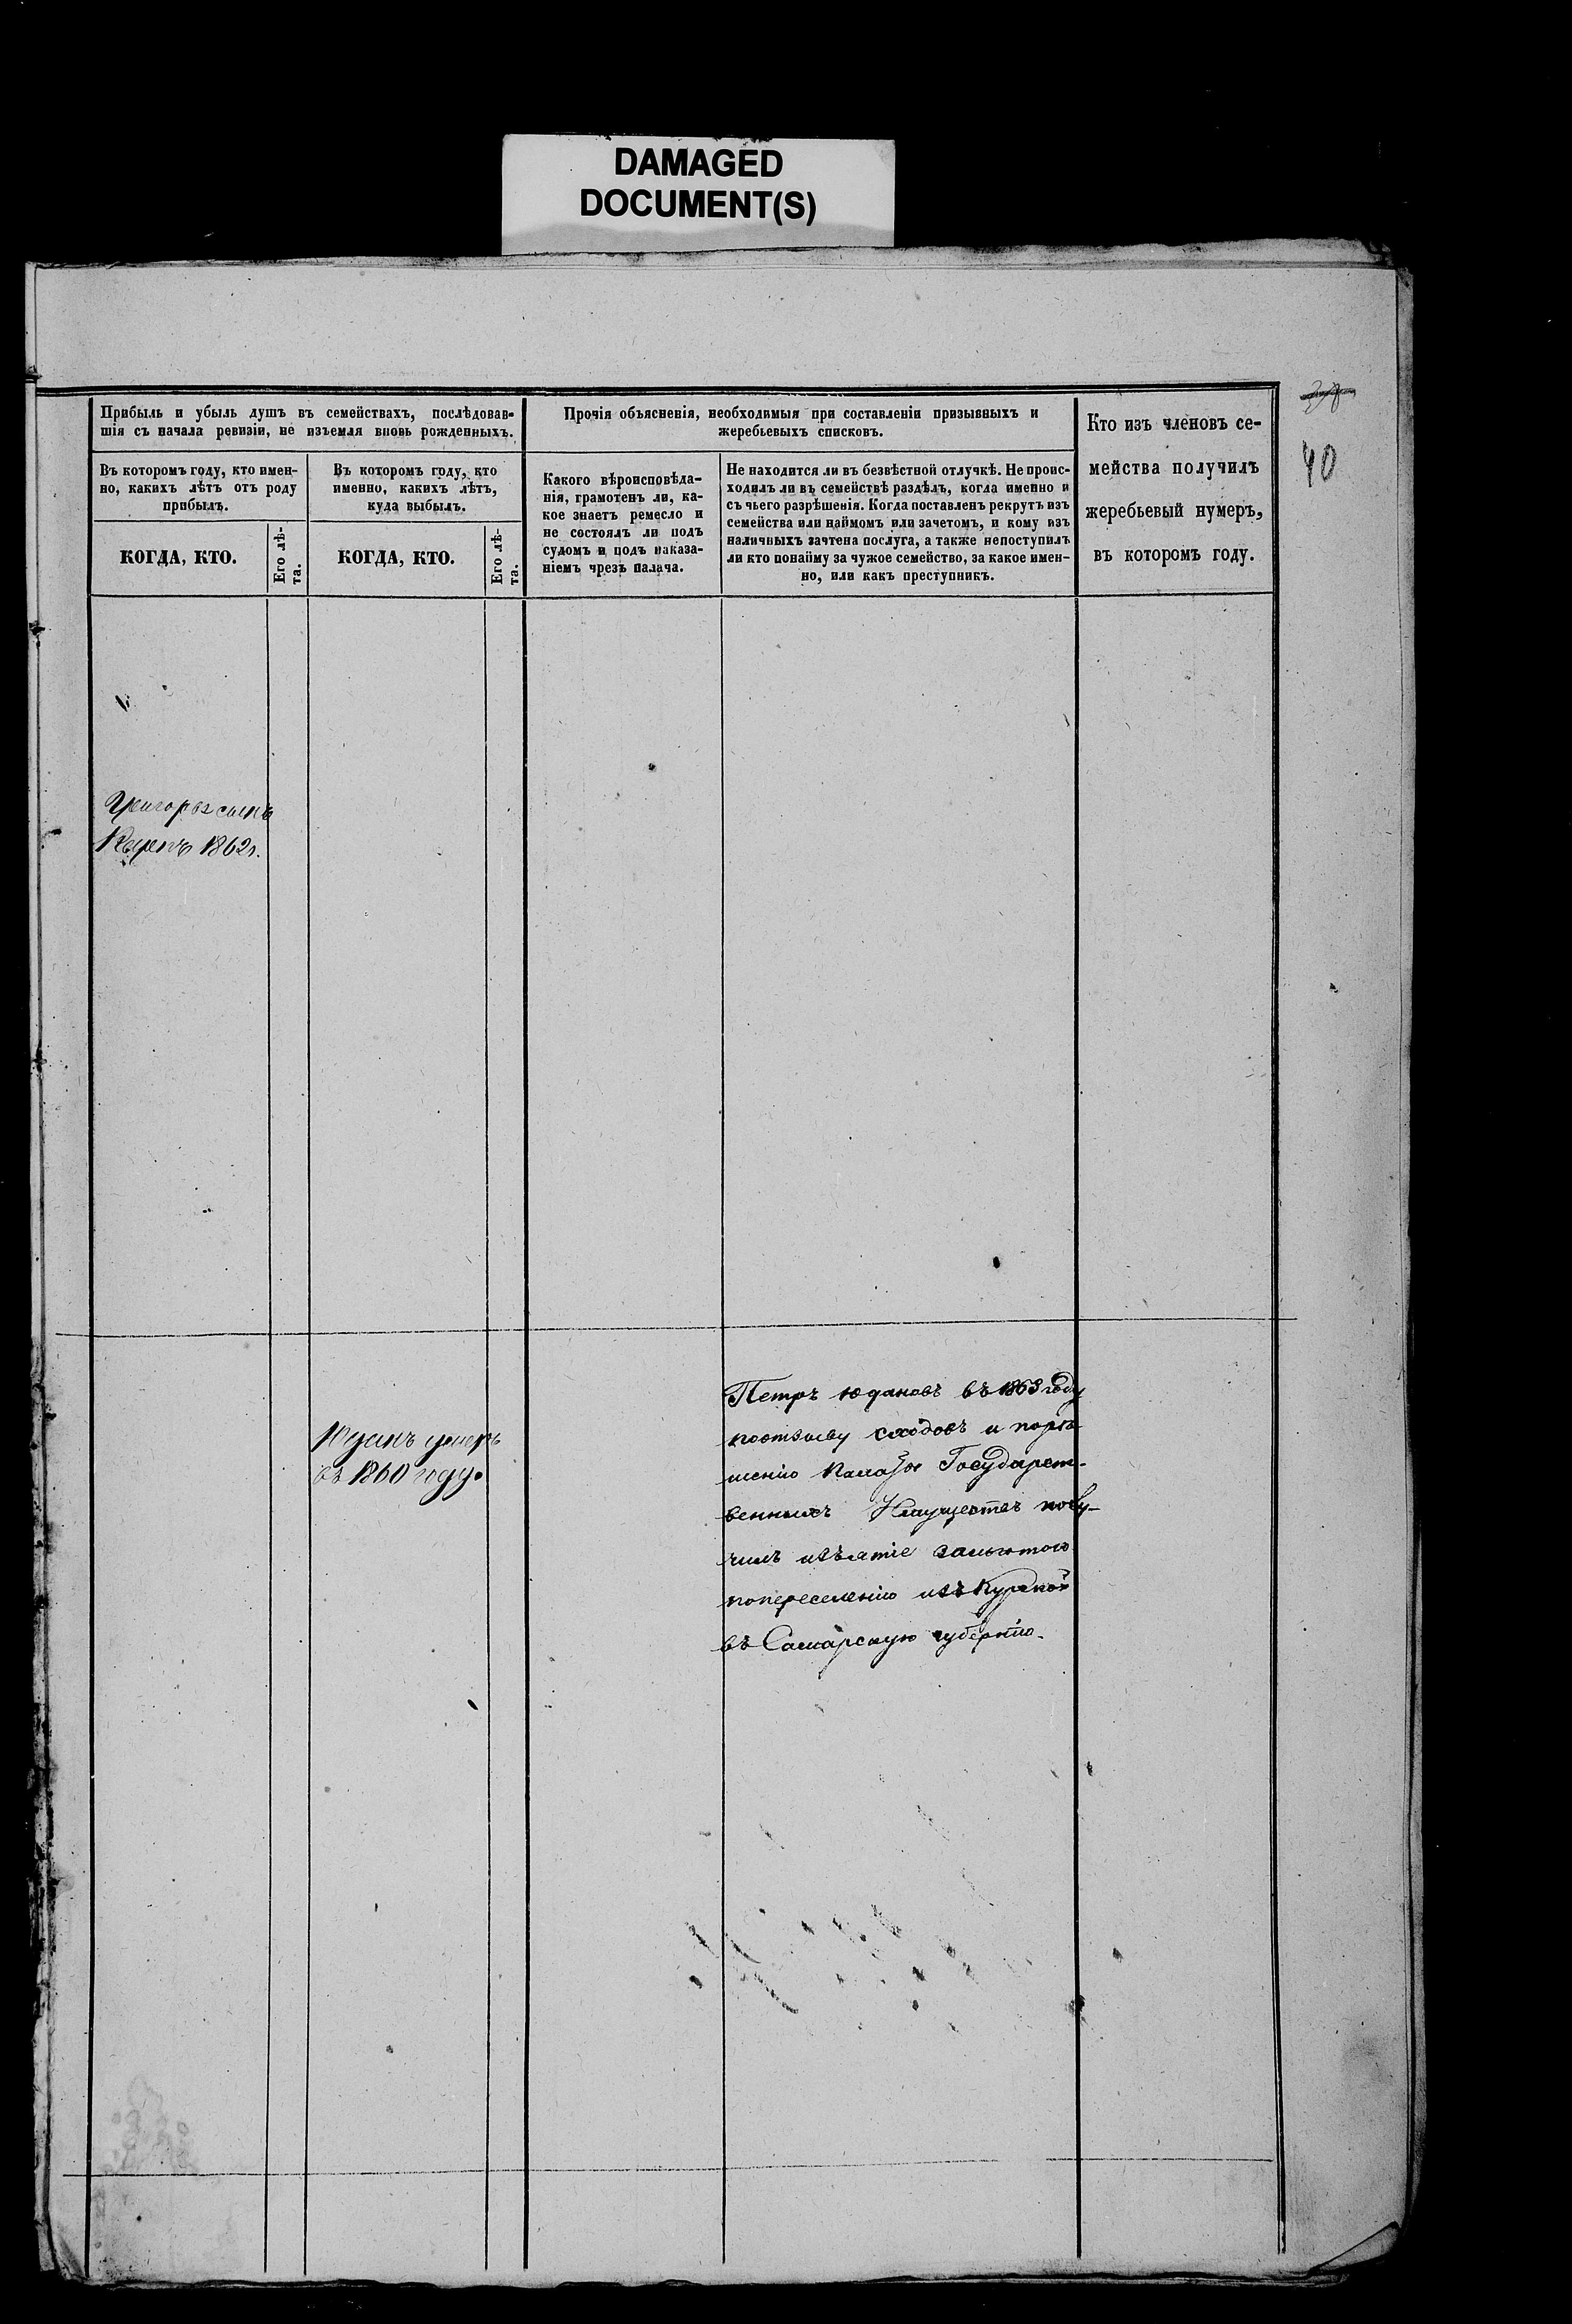 DAMAGED
DOCUMENT(S)
40
Прибыль и убыль душъ въ семействахъ, послѣдовав-
шія съ начала ревизіи, не изъемля вновь рожденныхъ.
Прочія объясненія, необходимыя при составленіи призывныхъ и
жеребьевыхъ списковъ.
Кто изъ членовъ се-
мейства получилъ
жеребьевый нумеръ,
въ которомъ году.
Въ которомъ году, кто имен-
но, какихъ лѣтъ отъ роду
прибылъ.
Въ которомъ году, кто
именно, какихъ лѣтъ,
куда выбылъ.
Какого вѣроисповѣда-
нія, грамотенъ ли, ка-
кое знаетъ ремесло и
не состоялъ ли подъ
судомъ и подъ наказа-
ніемъ чрезъ палача.
Не находится ли въ безвѣстной отлучкѣ. Не проис-
ходилъ ли въ семействѣ раздѣлъ, когда именно и
съ чьего разрѣшенія. Когда поставленъ рекрутъ изъ
семейства или наймомъ или зачетомъ, и кому изъ
наличныхъ зачтена послуга, а также непоступилъ
ли кто понайму за чужое семейство, за какое имен-
но, или какъ преступникъ.
КОГДА, КТО.
Его лѣ-
та.
КОГДА, КТО.
Его лѣ-
та.
сынъ
1862г.
Юданъ умеръ
въ 1860 году.
Петръ Юдановъ въ 1863 году
сходовъ и порѣ-
шенію Палаты Государст-
венныхъ Имуществъ полу-
чилъ изъятіе
попереселенію изъ Курской
въ Самарскую губернію.